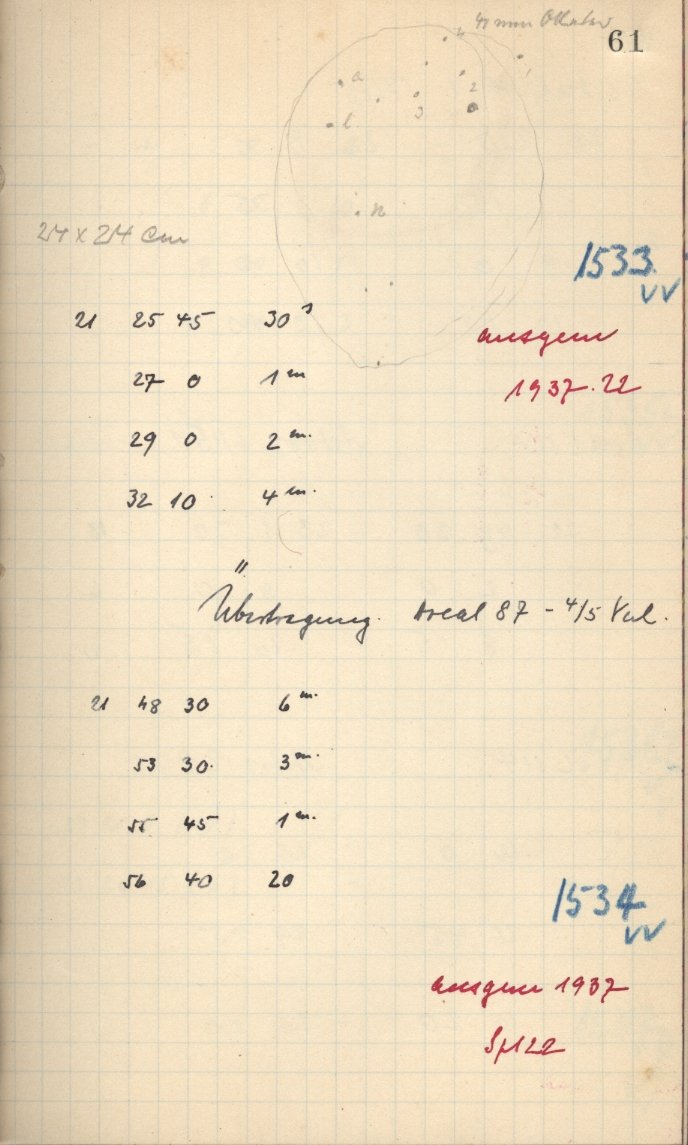 61
a
b
2
3
n
24 x 24 cm
1533
VV
21 25 45 30 s
ausgem
1937.22
27 0 1 m
29 0 2 m.
32 10 4 m.
Übertragung. Areal 87 - 4/5 Vul.
21 48 30 6 m.
53 30. 3 m.
55 45 1 m.
56 40 20
1534
VV
ausgem 1937
22